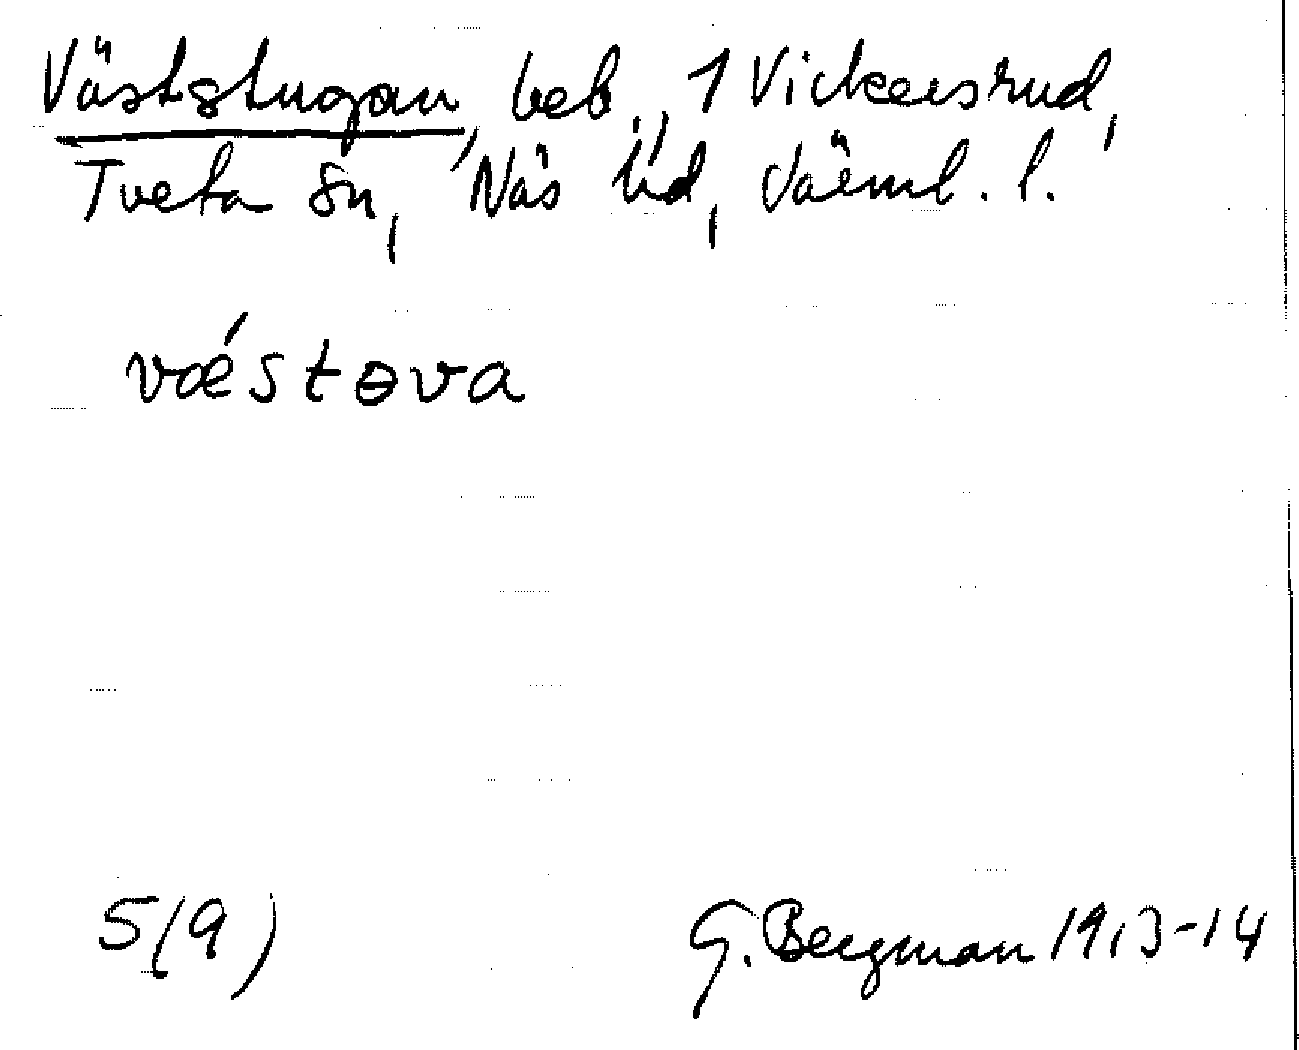 Väststugan, beb., 1 Vickersrud,
Tveta sn, Näs hd, Värml. l.
vǽstɵva
5(9)
G. Bergman 1913-14